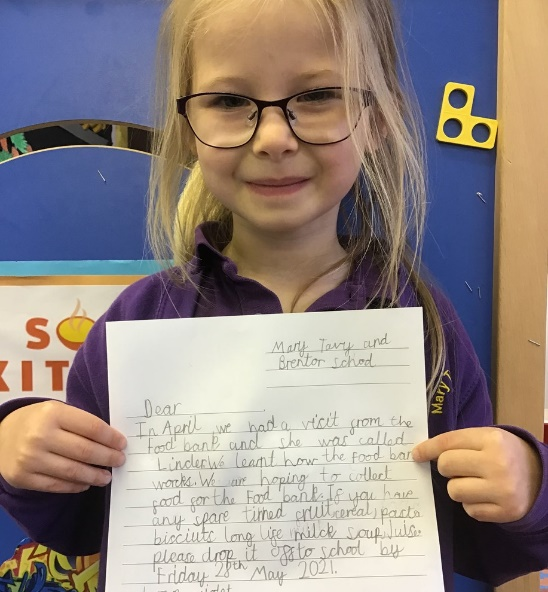 SO
KIT
Mary T
Mary Tavy and
Brentor School
Dear
In April we had a visit from the
food bank and she was called
Linder. We learnt how the Food ban
works. We are hoping to collect
good for the Food bank. If you have
any spare tinned fruit, cereal, pasta
bisciuts long life milck soup, Juise
please drop it off to school by
Friday 28th May 2021.